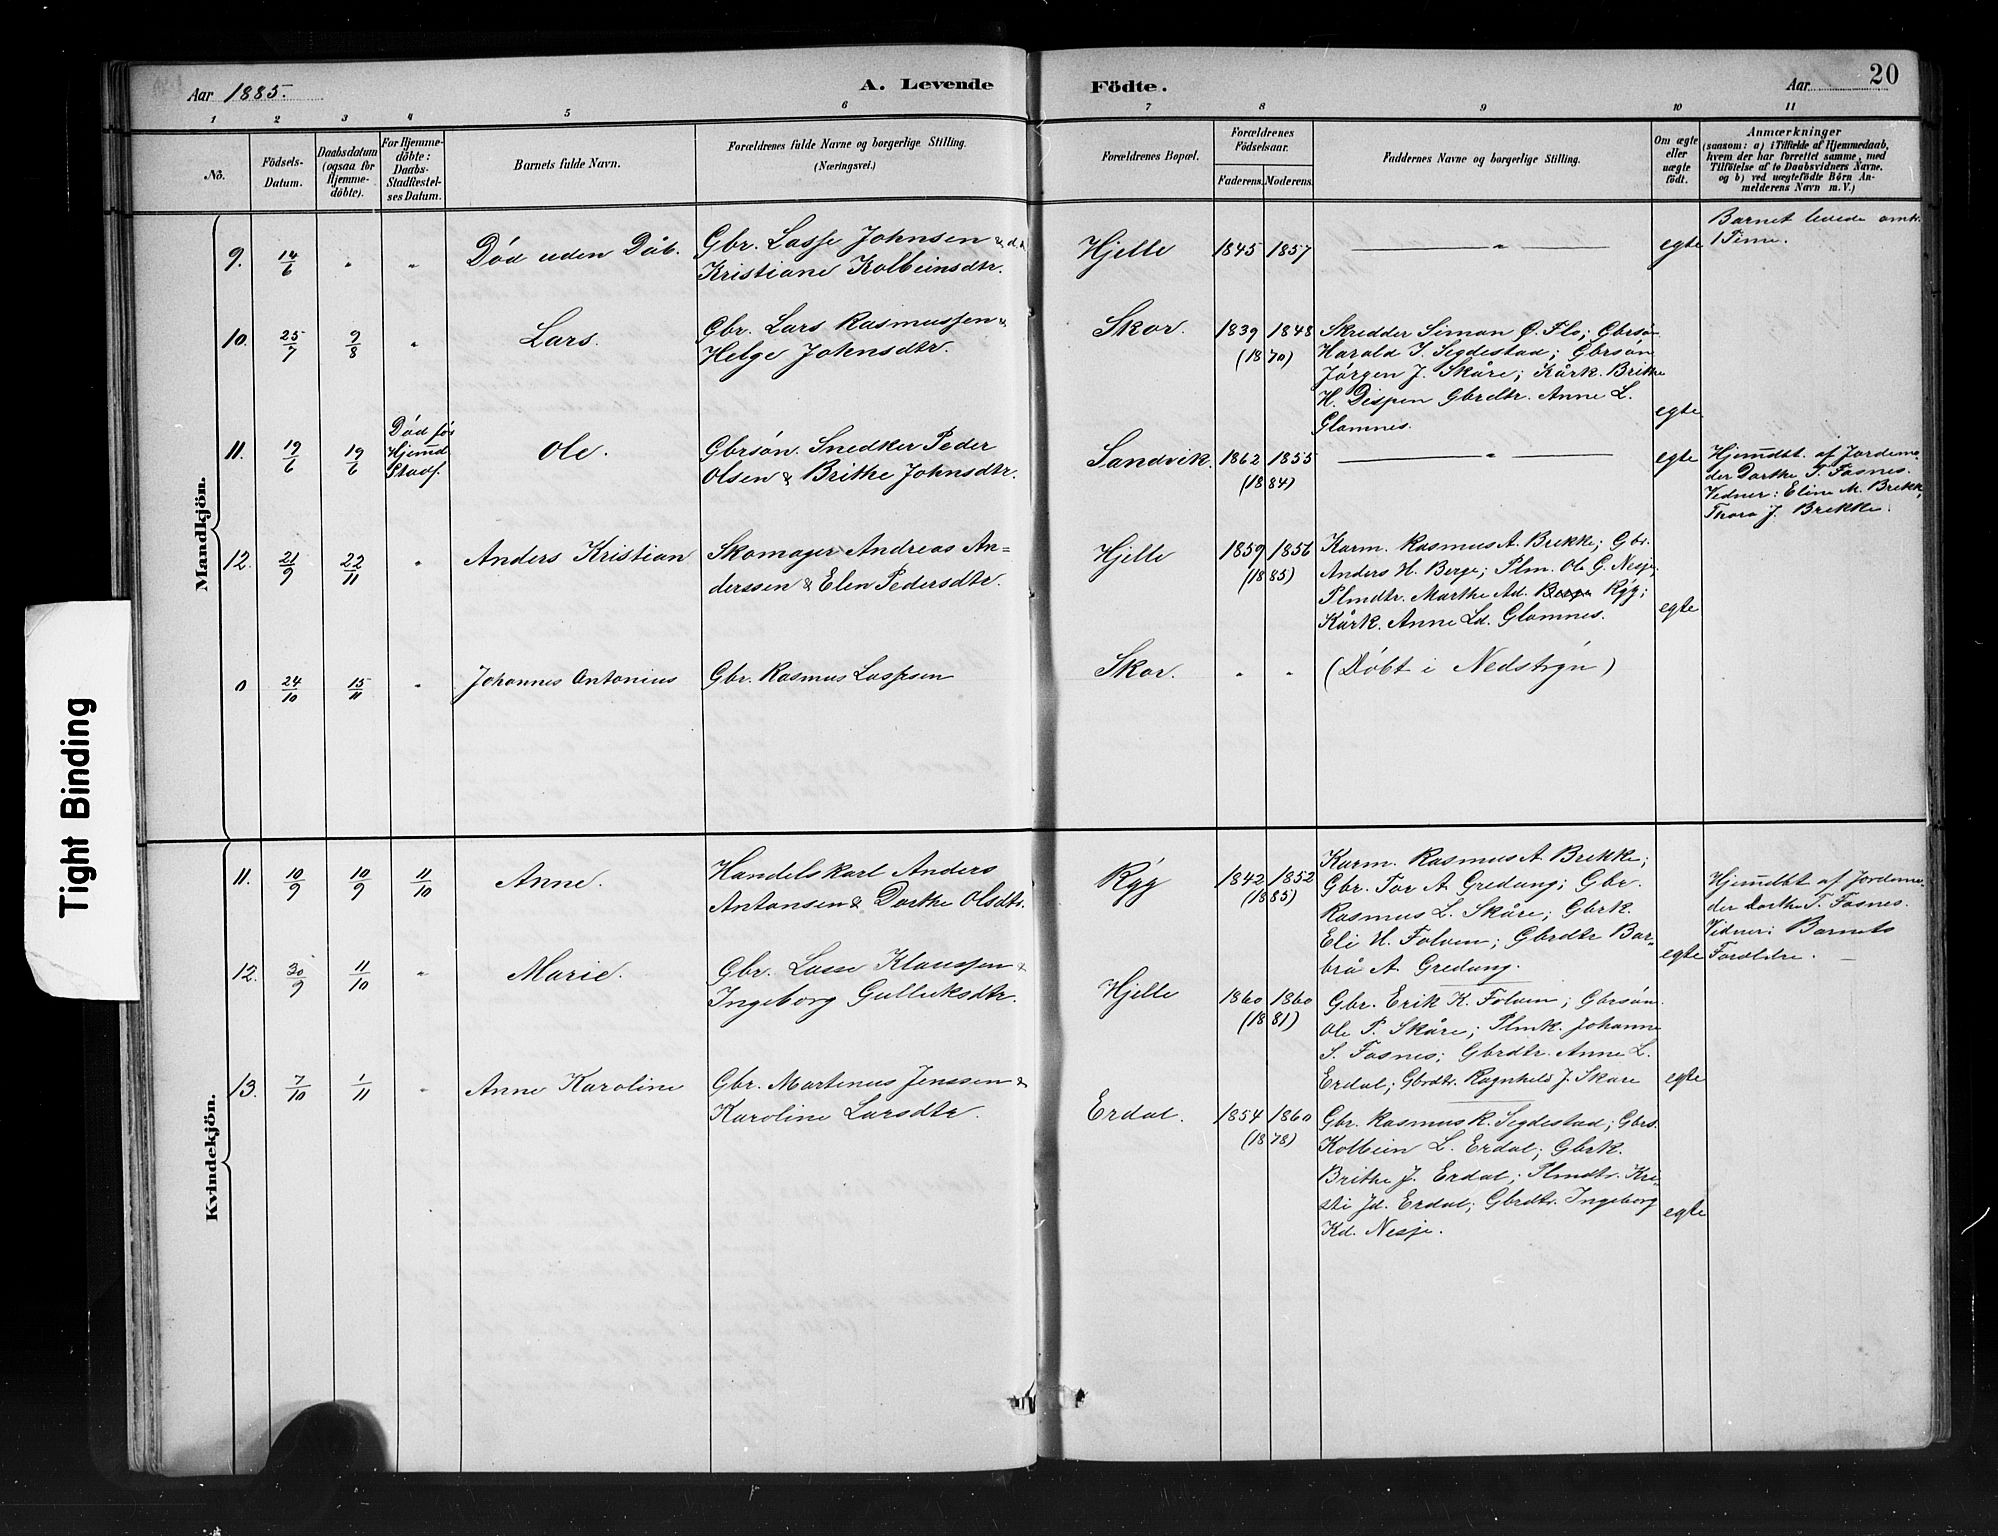 Aar 1885.
A. Levende
Födte.
Aar
20
1 2 3 4 5 6 7 8 9 10 11
No.
Födsels-
Datum.
Daabsdatum
(ogsaa for
Hjemme-
döbte).
For Hjemme-
döbte:
Daabs-
Stadfestel-
ses Datum.
Barnets fulde Navn.
Forældrenes fulde Navne og borgerlige Stilling.
(Næringsvei.)
Forældrenes Bopæl.
Forældrenes
Födselsaar.
Faderens. Moderens.
Faddernes Navne og borgerlige Stilling.
Om ægte
eller
uægte
født.
Anmærkninger
(saasom: a) i Tilfælde af Hjemmedaab,
hvem der har forrettet samme, med
Tilføielse af to Daabsvidners Navne,
og b) ved uægtefødte Börn An-
melderens Navn m. V.)
Mandkjön.
9. 14/6 " " Død uden Dåb.
Gbr. Lasse Johnsen &
Kristiane Kolbeinsdtr.
Hjelle 1845 1857 " egte
Barnet levede omk.
1 Time.
10. 25/7 9/8 " Lars.
Gbr. Lars Rasmussen &
Helge Johnsdtr.
Skor. 1839 1848
(1870)
Skredder Simon Ø. Flo; Gbrsøn
Harald I. Segdestad; Gbrsøn
Jørgen J. Skåre; Kårk. Brithe
H. Dispen Gbrdtr. Anne L.
Glomnes.
egte
11. 19/6 19/6
Død før
Hjemd
Stadf.
Ole.
Gbrsøn. Snedker Peder
Olsen & Brithe Johnsdtr.
Sandvik. 1862 1855
(1884)
" egte
Hjemdbt. af Jordemo-
der Dorthe T. Fosnes.
Vidner: Eline M. Brekk,
Thora J. Brekke.
12. 21/9 22/11 " Anders Kristian
Skomager Andreas An-
derssen & Elen Pedersdtr.
Hjelle 1859 1856
(1885)
Karm. Rasmus A. Brekke; Gbr.
Anders H. Berge; Plm. Ole G. Nesje;
Plmdtr. Marthe Ad. Berge Rÿg;
Kårk. Anne Ld. Glomnes.
egte
0 24/10 15/11 " Johannes Antonius
Gbr. Rasmus Lassesen
Skor. " " (Døbt i Nedstryn)
Kvindekjön.
11. 10/9 10/9 11/10 Anne.
Handelskarl Anders
Antonsen & Dorthe Olsdtr.
Rÿg 1842 1852
(1885)
Karm. Rasmus A. Brekke;
Gbr. Tor A. Gredung; Gbr.
Rasmus L. Skåre; Gbrk.
Eli H. Folven; Gbrdtr Bar-
brå A. Gredung.
egte
Hjemdbt af Jordemo-
der Dorthe T. Fosnes.
Vidner: Barnets
Foroldre.
12. 30/9 11/10 " Marie.
Gbr. Lasse Klaussen &
Ingeborg Gulleiksdtr.
Hjelle 1860 1860
(1881)
Gbr. Erik K. Folven; Gbrsøn
Ole P. Skåre; Plmk. Johanne
S. Fosnes; Gbrdtr. Anne L.
Erdal; Gbrdtr. Ragnheld J. Skåre
egte
13. 7/10 1/11 " Anne Karoline
Gbr. Martenus Jenssen &
Karoline Larsdtr.
Erdal. 1854 1860
(1878)
Gbr. Rasmus R. Segdestad; Gbrs.
Kolbein L. Erdal; Gbrk.
Brithe J. Erdal; Plmdtr. Kri-
sti Jd. Erdal; Gbrdtr. Ingeborg
Kd. Nesje.
egte
Tight Binding